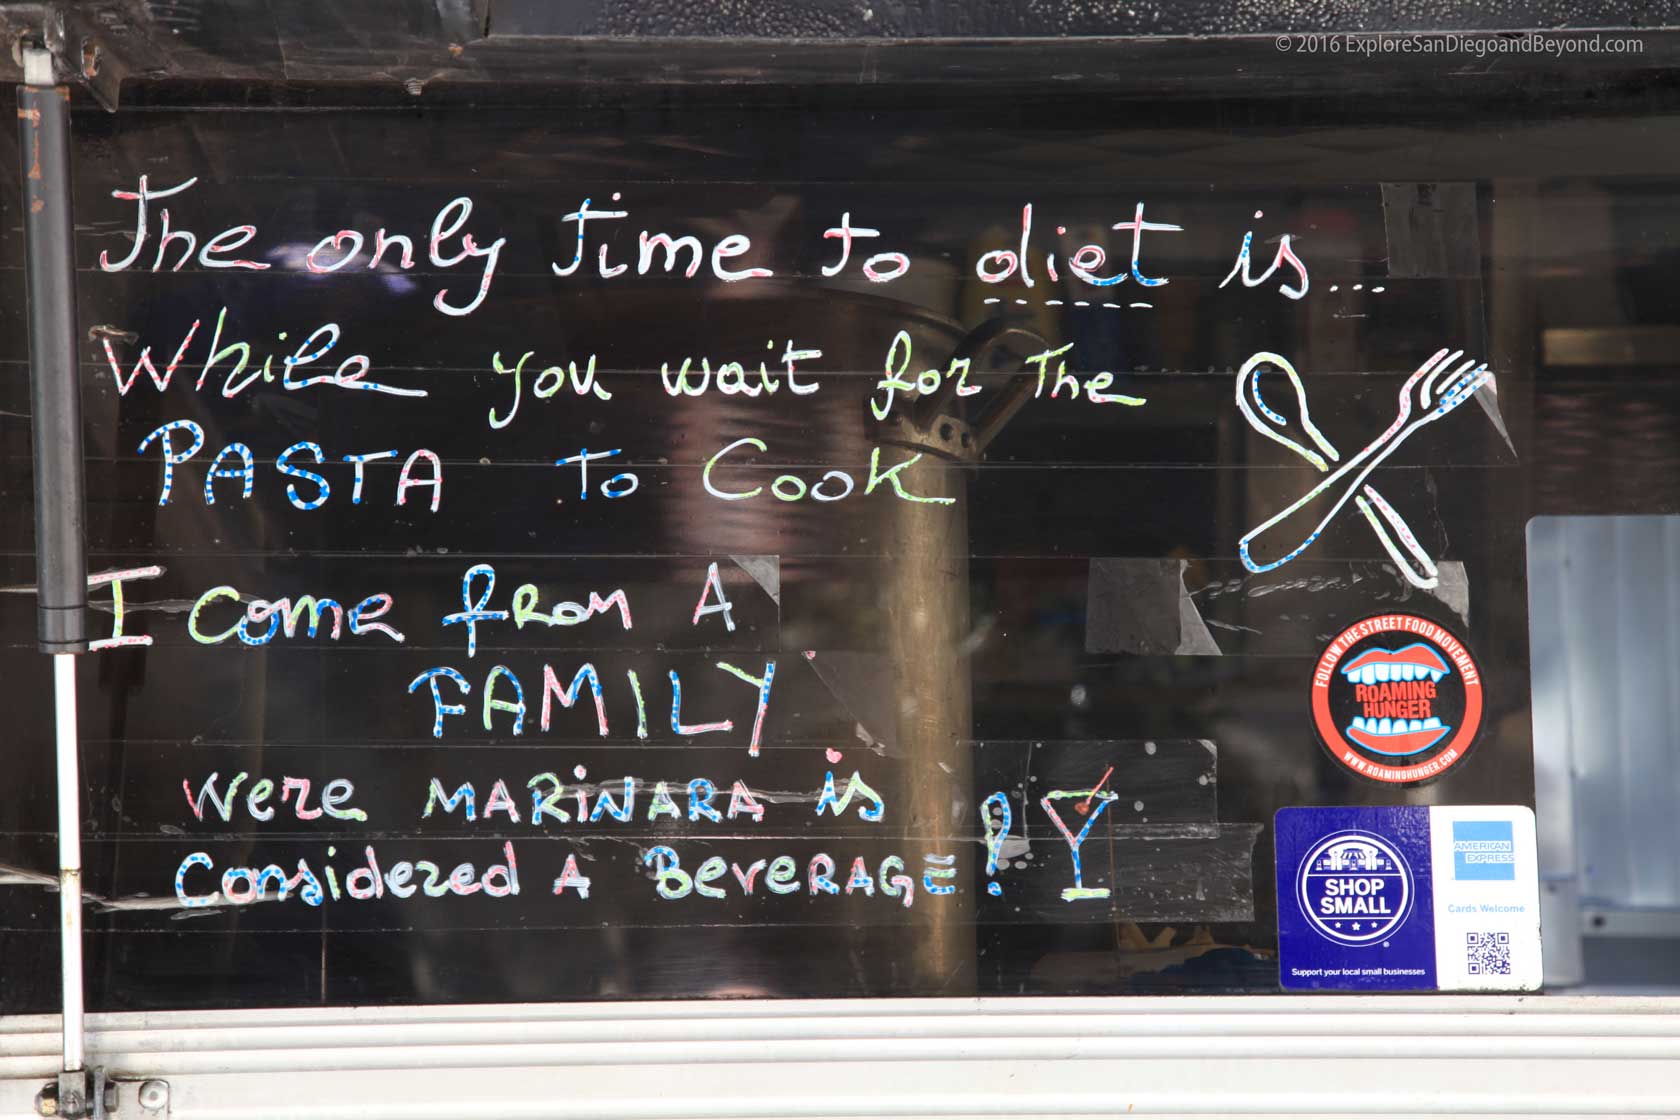 © 2016 ExploreSanDiegoandBeyond.com
The only time to diet is...
While you wait for The
PASTA To Cook
I come from A
FAMILY
were MARINARA is
Considered A BeverAGE!
FOLLOW THE STREET FOOD MOVEMENT
ROAMING
HUNGER
WWW.ROAMINGHUNGER.COM
SHOP
SMALL
Support your local small businesses
AMERICAN
EXPRESS
Cards Welcome